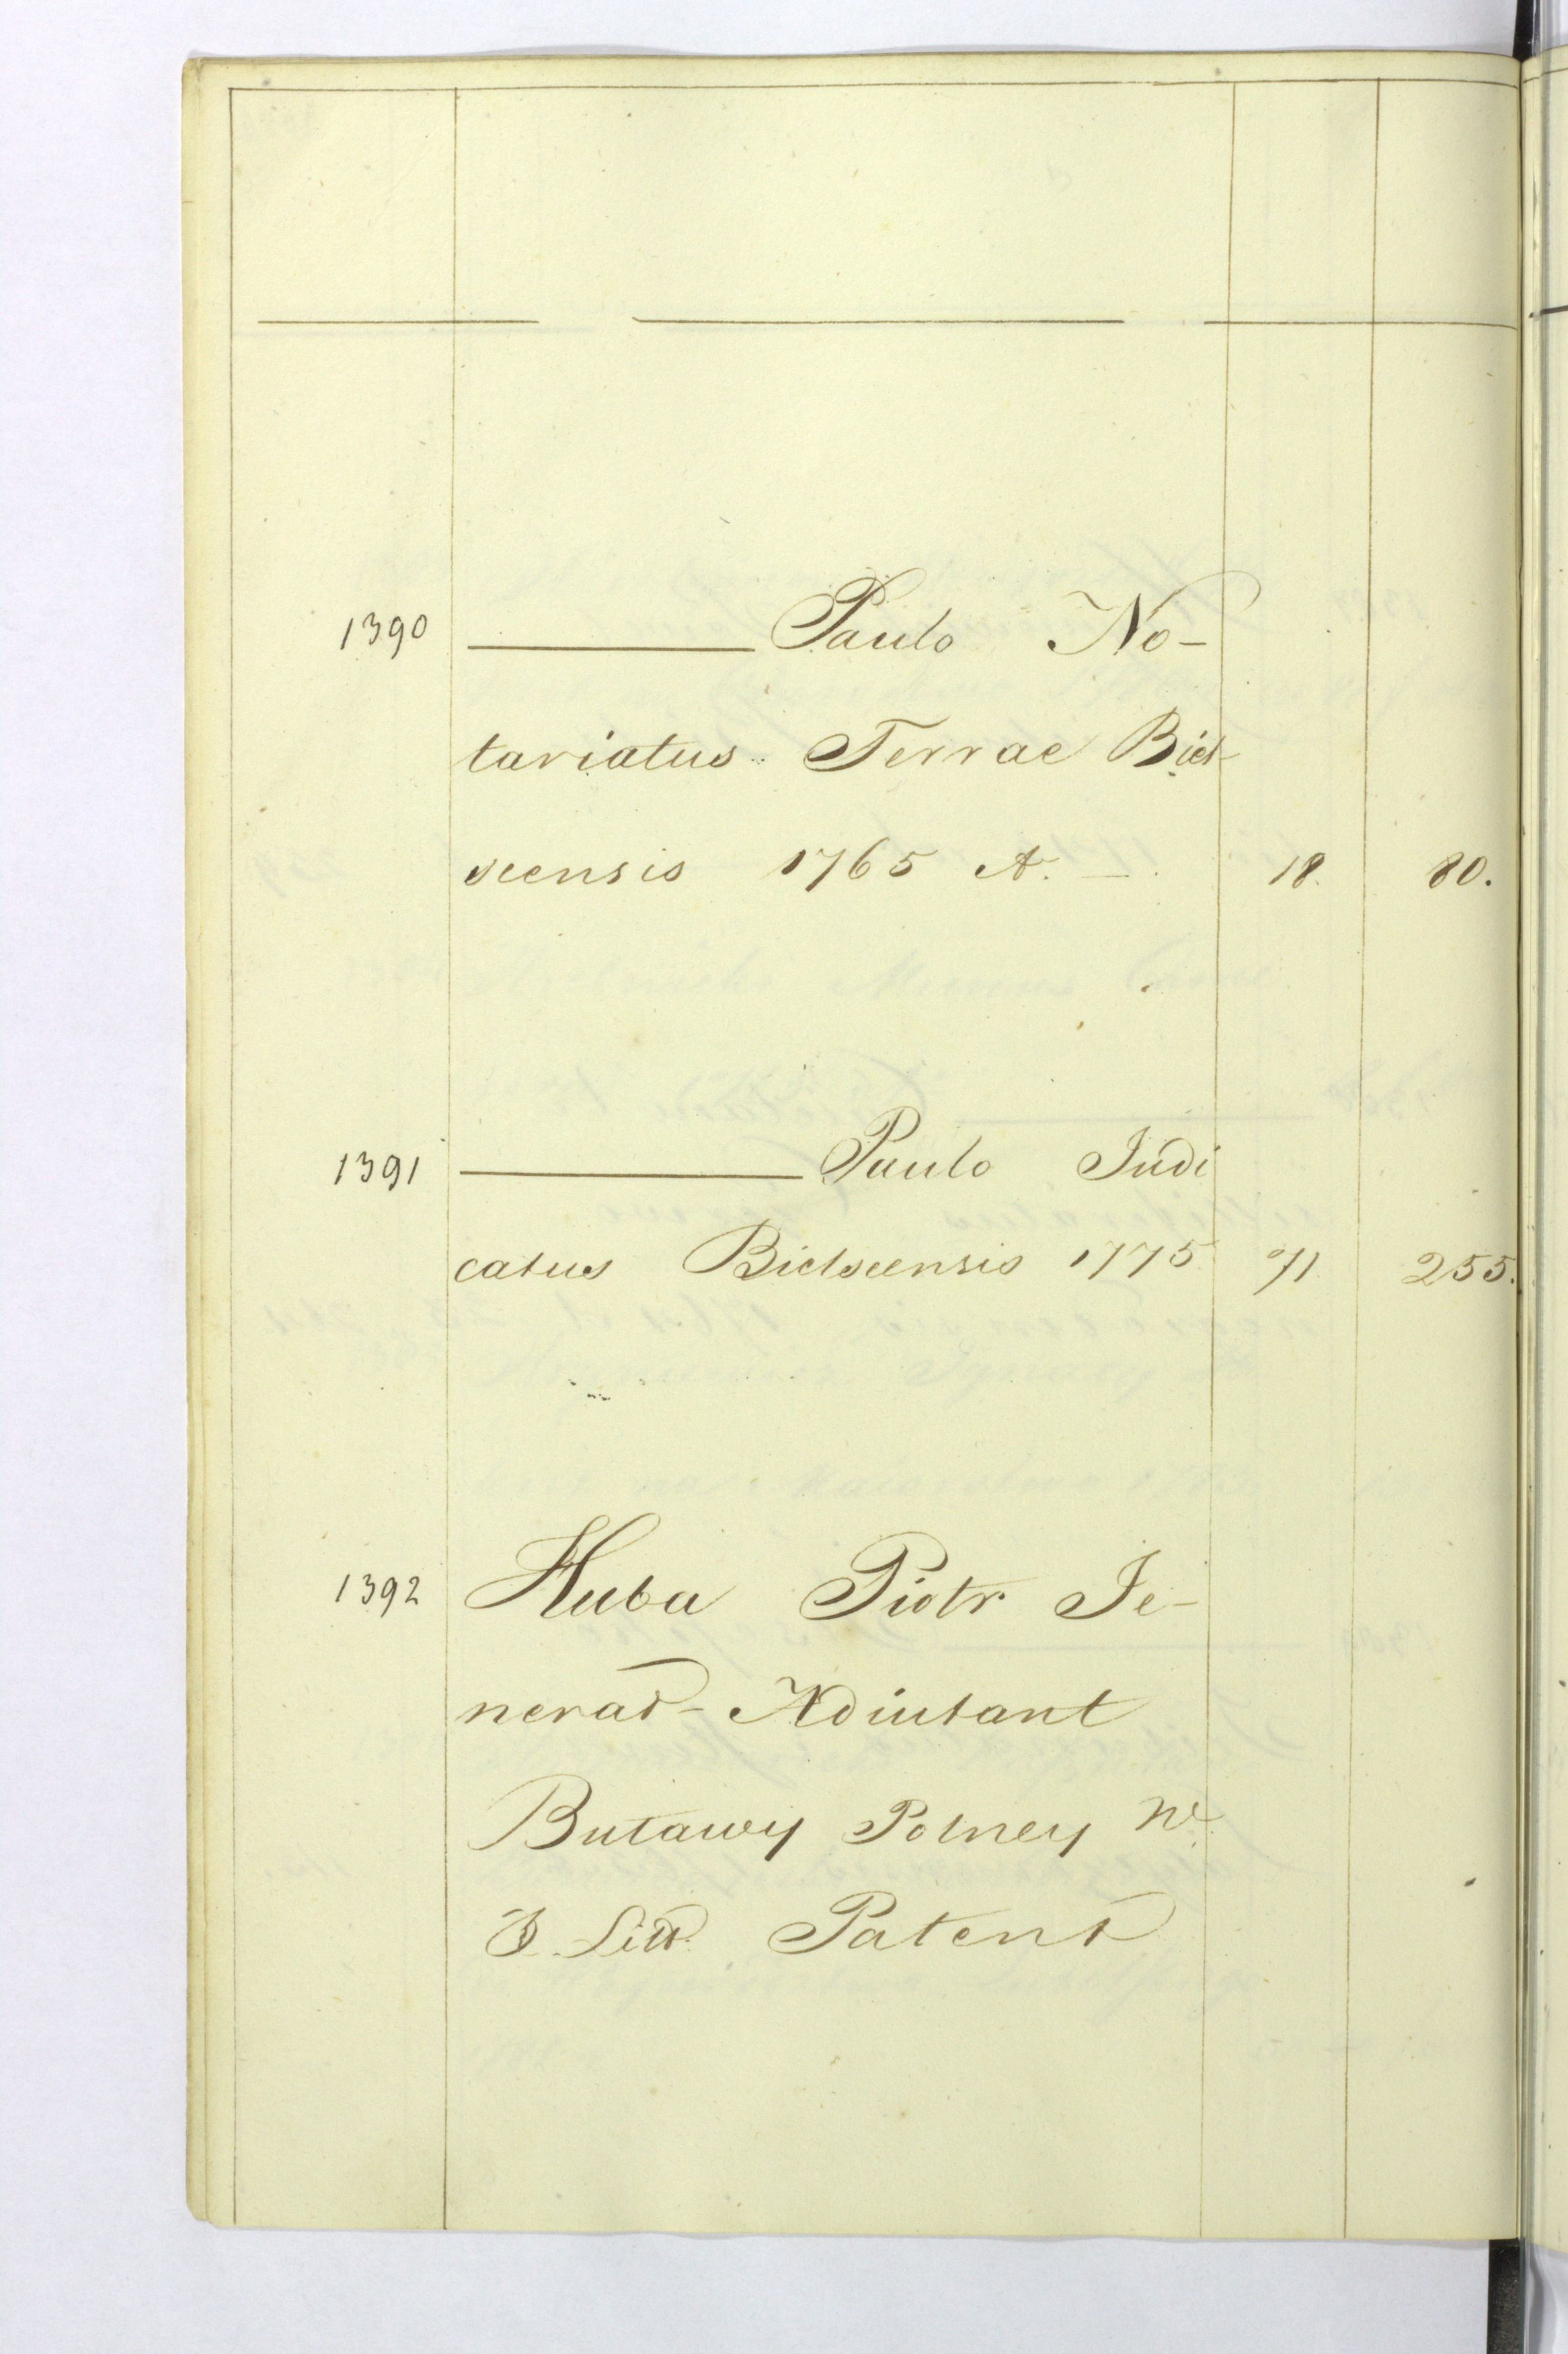 1390 ——— Paulo No-
tariatus Terrae Biel-
scensis 1765 A. — 18. 80.
1391 ——— Paulo Judi
catus Bielscensis 1775 71 255.
1392 Huba Piotr Je-
nerał-Adiutant
Buławy Polney W.
X. Litt. Patent